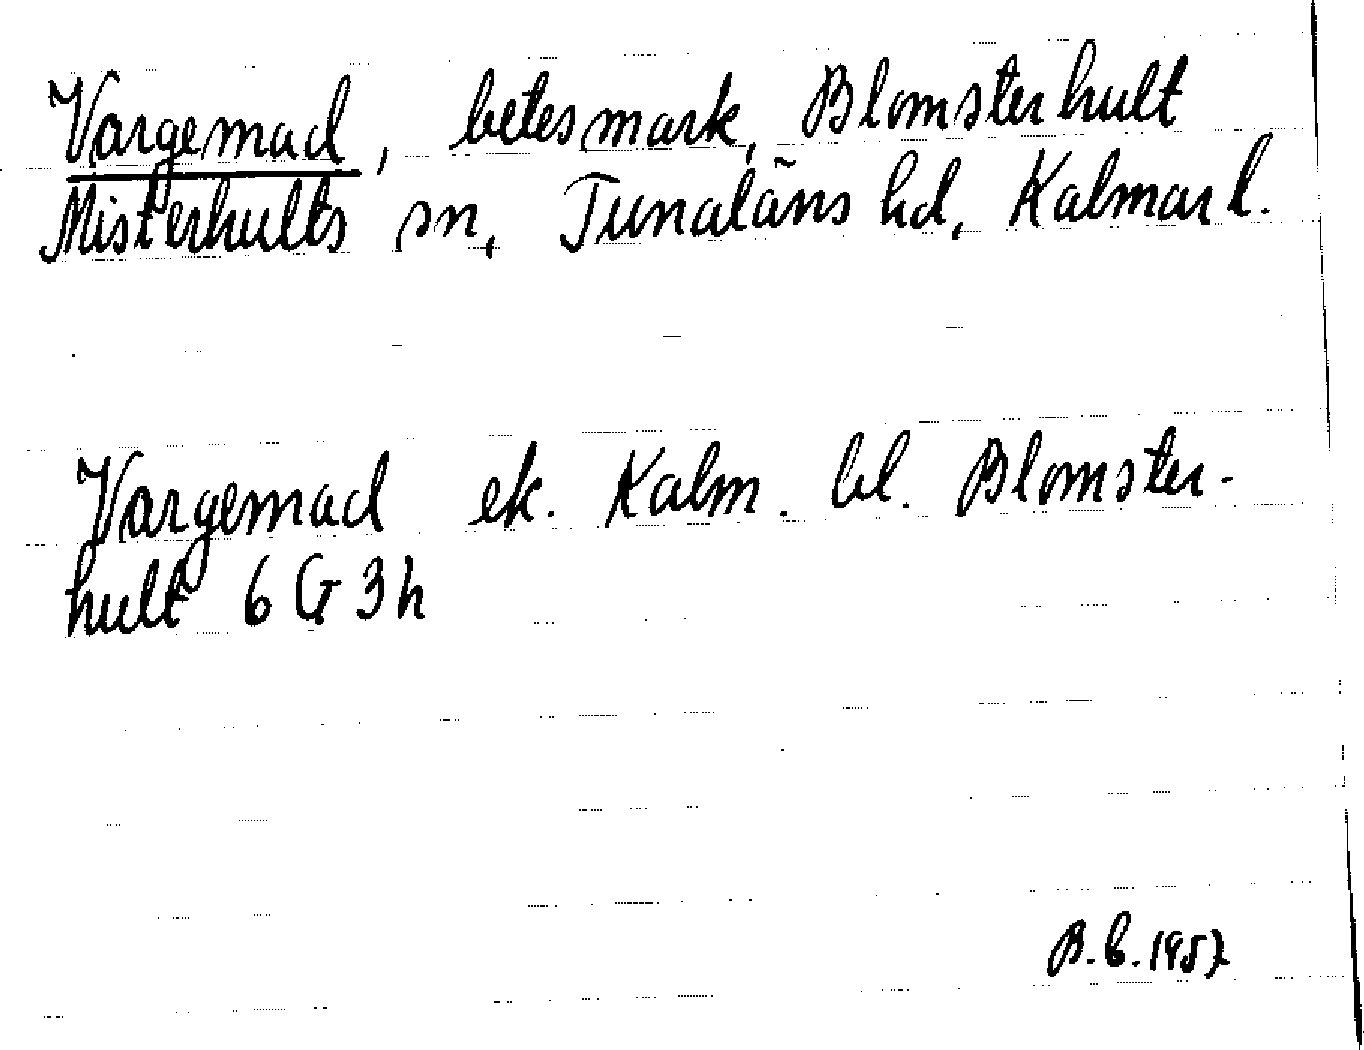 Vargemad, betesmark, Blomsterhult
Misterhults sn, Tunaläns hd, Kalmar l.
Vargemad ek. Kalm. bl. Blomster-
hult 6 G 3 h
B. C. 1957